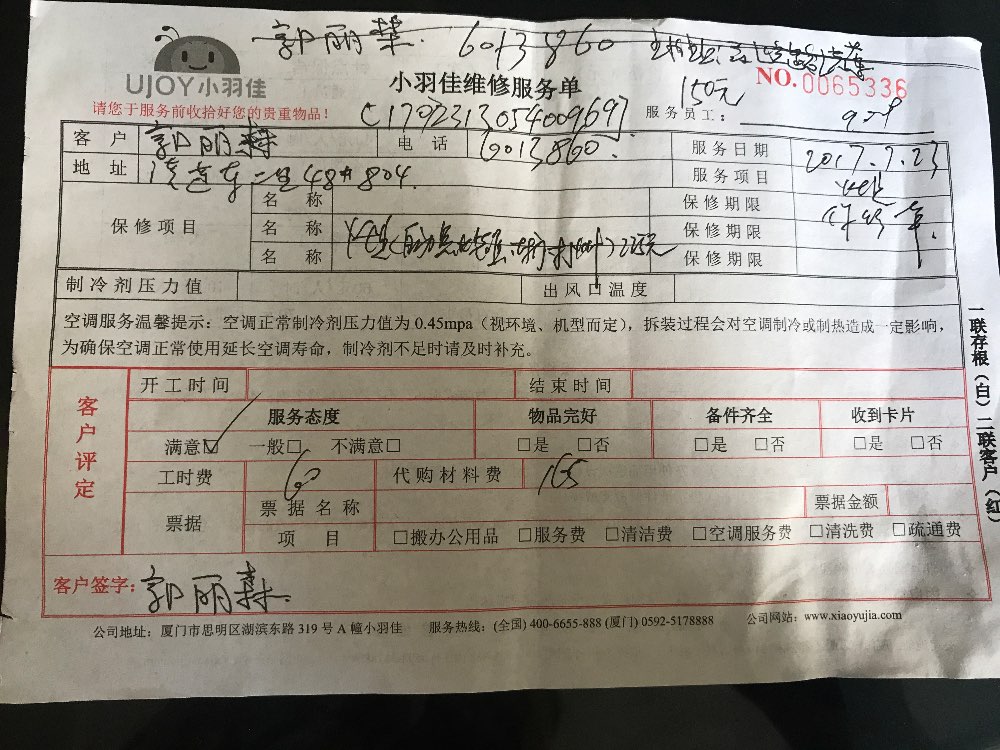 郭丽菻 6013860
UJOY小羽佳
小羽佳维修服务单
150元
NO.0065336
请您于服务前收拾好您的贵重物品!
C17023130540096971
服务员工:
客户 郭丽菻 电话 6013860. 服务日期 2017.7.23
地址 48#804. 服务项目
保修项目 名称 保修期限
名称 保修期限
名称 保修期限
制冷剂压力值 出风口温度
空调服务温馨提示:空调正常制冷剂压力值为 0.45mpa(视环境、机型而定),拆装过程会对空调制冷或制热造成一定影响,
为确保空调正常使用延长空调寿命,制冷剂不足时请及时补充。
客户评定
开工时间 结束时间
服务态度 物品完好 备件齐全 收到卡片
满意☑ 一般□ 不满意□ □是 □否 □是 □否 □是 □否
工时费 60 代购材料费 165
票据 票据名称 票据金额
项目 □搬办公用品 □服务费 □清洁费 □空调服务费 □清洗费 □疏通费
客户签字: 郭丽菻
公司地址:厦门市思明区湖滨东路 319 号 A 幢小羽佳 服务热线:(全国) 400-6655-888 (厦门) 0592-5178888 公司网站:www.xiaoyujia.com
一联存根(白)二联客户(红